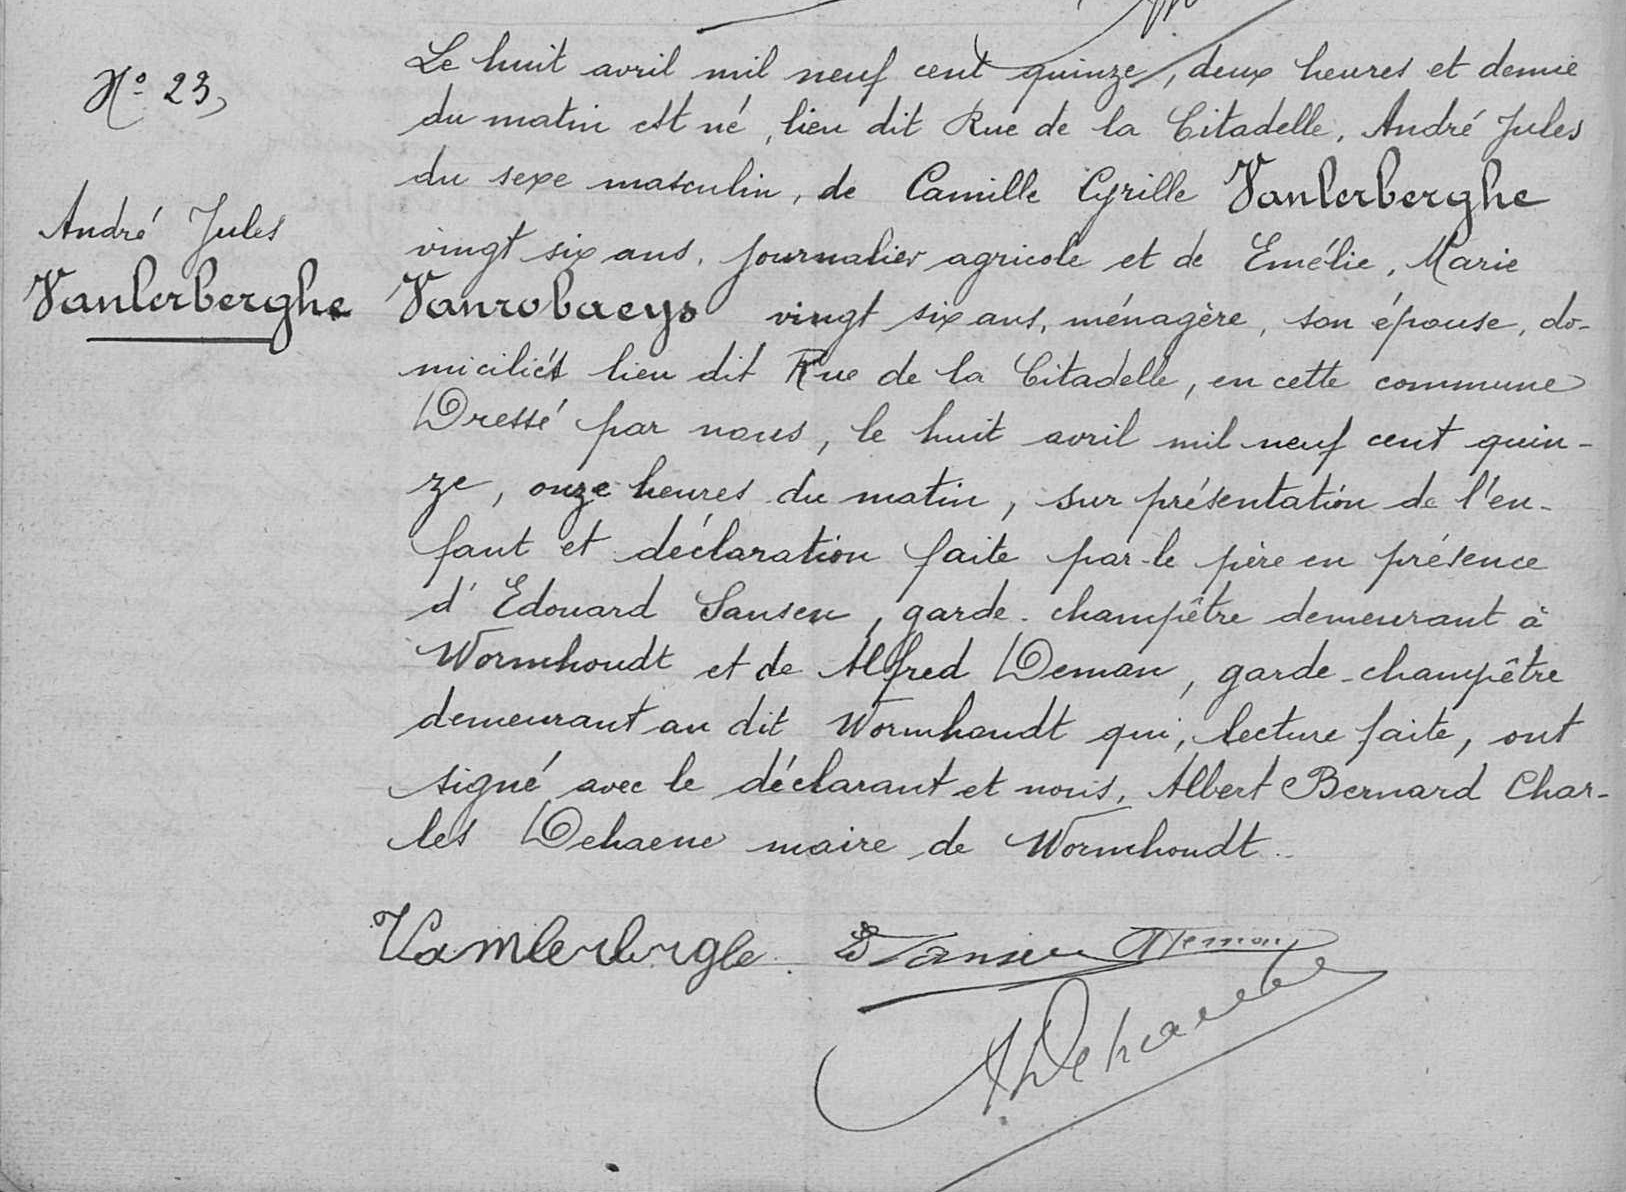 N° 23
André Jules
Vanlerberghe
Le huit avril mil neuf cent quinze, deux heures et demie
du matin est né, lieu dit Rue de la Citadelle, André Jules
du sexe masculin, de Camille Cyrille Vanlerberghe
vingt six ans, journalier agricole et de Emélie, Marie
Vanrobaeys vingt six ans, ménagère, son épouse, do-
miciliés lieu dit Rue de la Citadelle, en cette commune
Dressé par nous, le huit avril mil neuf cent quin-
ze, onze heures du matin, sur présentation de l'en-
fant et déclaration faite par le père en présence
d'Edouard Sansen, garde-champêtre demeurant à
Wormhoudt et de Alfred Deman, garde-champêtre
demeurant au dit Wormhoudt qui, lecture faite, ont
signé avec le déclarant et nous, Albert Bernard Char-
les Dehaene maire de Wormhoudt.
Vamlerbergle. E Sansen ADeman
ADehaene